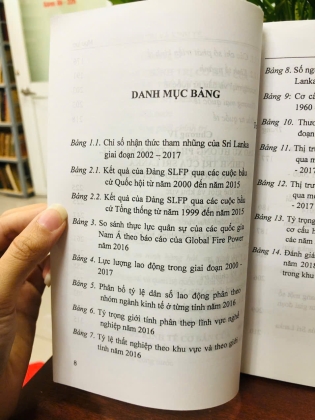 DANH MỤC BẢNG
Bảng 1.1. Chỉ số nhận thức tham nhũng của Sri Lanka
giai đoạn 2002 – 2017
Bảng 2.1. Kết quả của Đảng SLFP qua các cuộc bầu
cử Quốc hội từ năm 2000 đến năm 2015
Bảng 2.2. Kết quả của Đảng SLFP qua các cuộc bầu
cử Tổng thống từ năm 1999 đến năm 2015
Bảng 3. So sánh thực lực quân sự của các quốc gia
Nam Á theo báo cáo của Global Fire Power
năm 2016
Bảng 4. Lực lượng lao động trong giai đoạn 2000 -
2017
Bảng 5. Phân bổ tỷ lệ dân số lao động phân theo
nhóm ngành kinh tế ở từng tỉnh năm 2016
Bảng 6. Tỷ trọng giới tính phân theo lĩnh vực nghề
nghiệp năm 2016
Bảng 7. Tỷ lệ thất nghiệp theo khu vực và theo giới
tính năm 2016
8
Bảng 8. Số
Lanka
Bảng 9: Cơ cấ
1960
Bảng 10. Thư
đoạn
Bảng 11. Thị trư
qua mộ
- 2017
Bảng 12. Thị trư
qua mộ
- 2017
Bảng 13. Tỷ trọng
cơ cấu
các năm
Bảng 14. Đánh giá
năm 201
trong khu